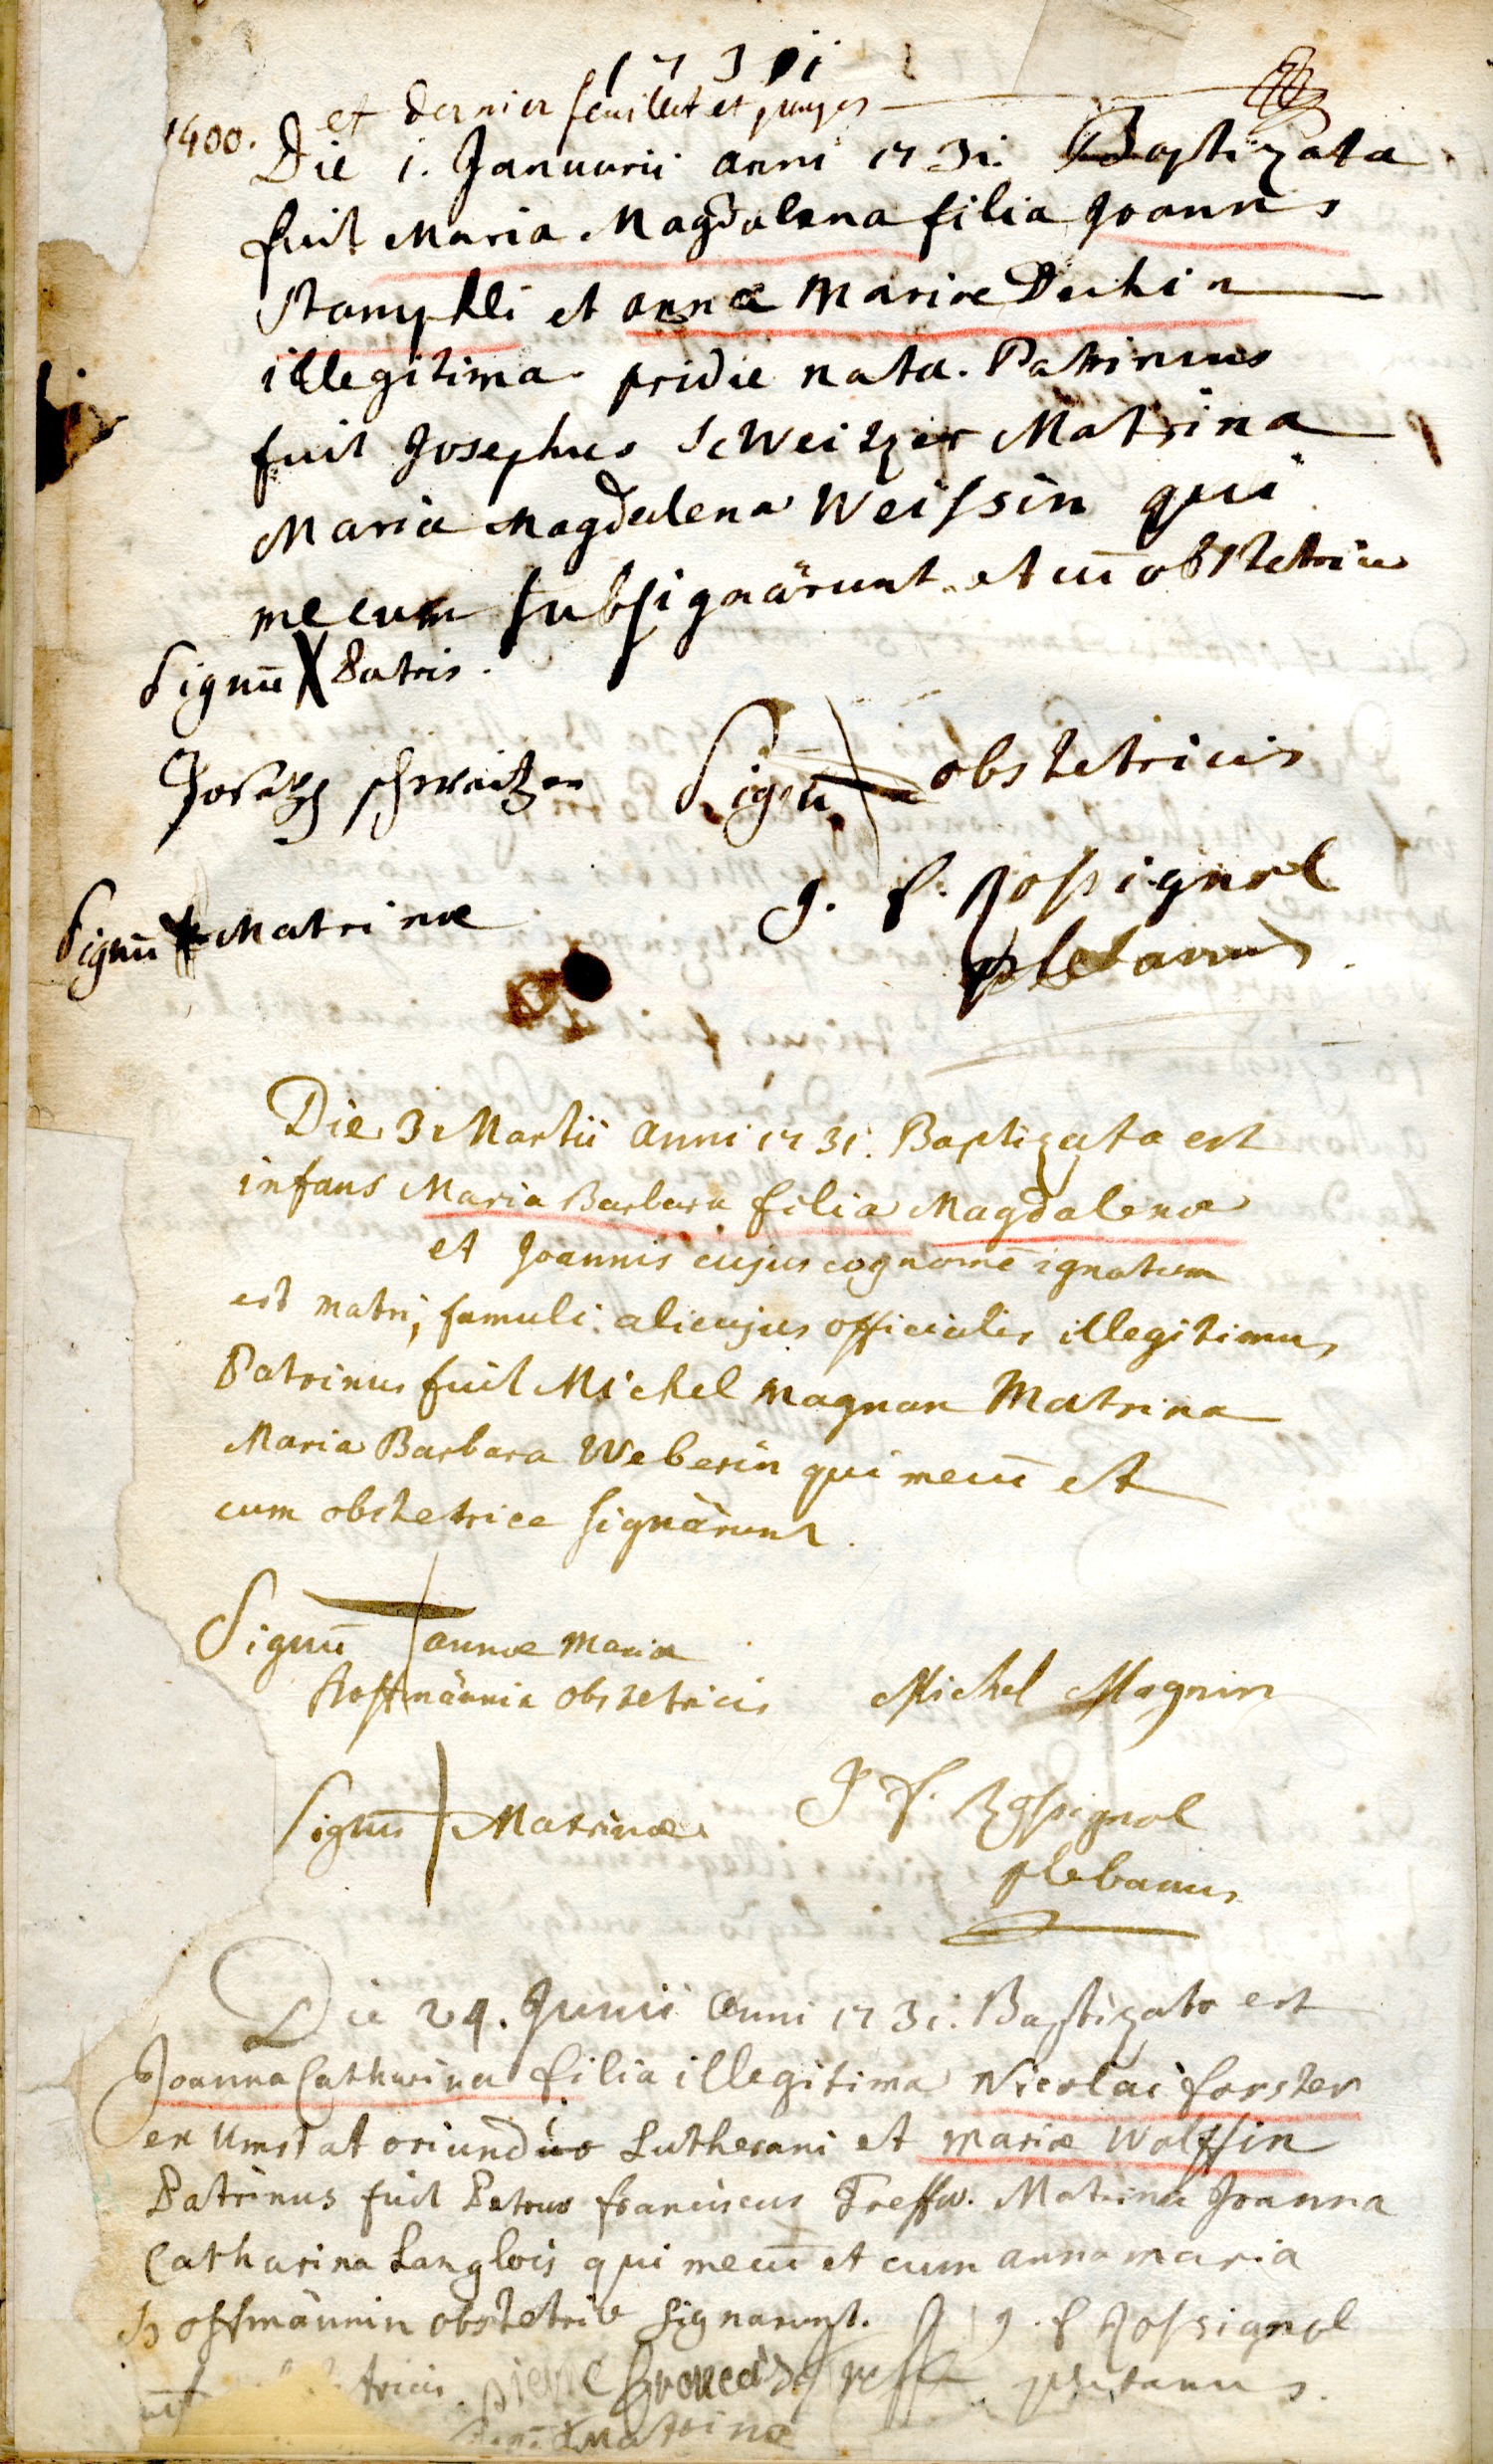 1731
et dernier feuillet et
1400. Die 1. Januarii anni 1731. Baptizata
fuit Maria Magdalena filia Joannis
Stamphli et annæ Mariæ
illegitima pridie nata. Patrinus
fuit Josephus Schweitzer Matrina
Maria Magdalena Weissin qui
mecum subsignârunt et cū obstetrice
Signū X Patris.
Joseph schweitzer Signū obstetricis
Signū Matrinæ J. f. Rossignol
plebanus
Die 3 Martii anni 1731. Baptizata est
infans Maria Barbara filia Magdalenæ
et Joannis cujus cognomē ignotum
est matri, famuli alicujus officialis illegitimus
Patrinus fuit Michel Magnan Matrina
Maria Barbara Weberin qui mecū et
cum obstetrice signârunt
Signū annæ Mariæ
Hoffmännin obstetricis Michel Magnin
Signū Matrinæ J f. Rossignol
plebanus
Die 24. Junii anni 1731. Baptizata est
Joanna Catharina filia illegitima Nicolai forster
ex Umstat oriundus Lutherani et Mariæ Wolffin
Patrinus fuit Petrus franciscus Treffu. Matrina Joanna
Catharina Langlois qui mecū et cum anna maria
Hoffmännin obstetrice signarunt. J. f Rossignol
tricis plebanus.
Matrinæ